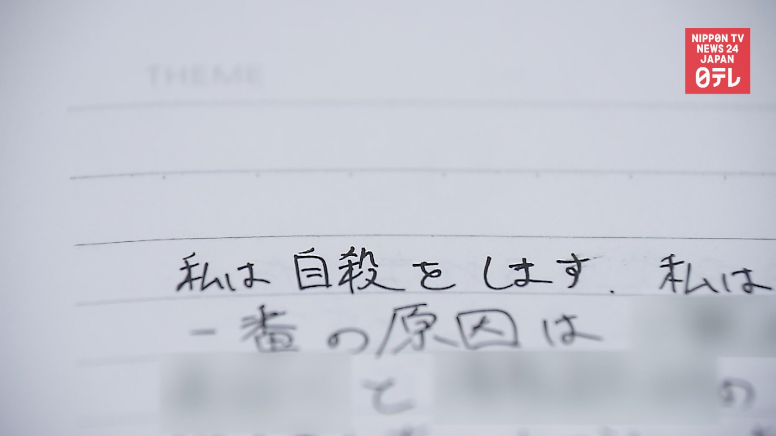 NIPPON TV
NEWS 24
JAPAN
日テレ
THEME
私は自殺をします. 私は
一番の原因は
と の